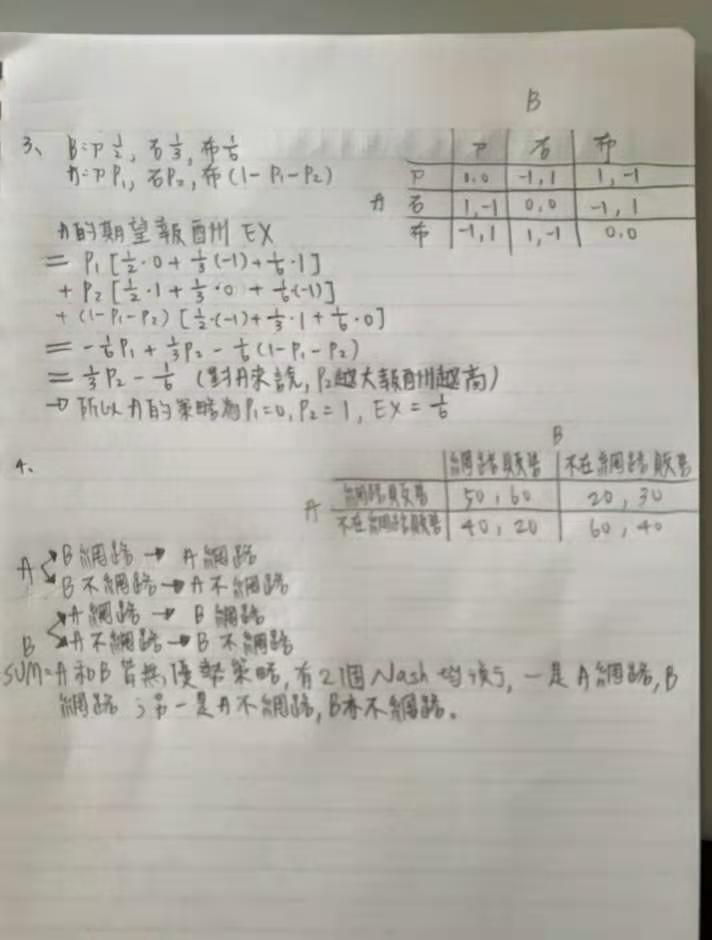 B
3、 B:P 1/2, 石 1/3, 布 1/6
A:P P₁, 石P₂, 布 (1-P₁-P₂)
P 石 布
P 0,0 -1,1 1,-1
A 石 1,-1 0,0 -1,1
布 -1,1 1,-1 0,0
A的期望報酬州 EX
= P₁ [1/2·0+1/3(-1)+1/6·1]
+ P₂ [1/2·1+1/3·0+1/6(-1)]
+ (1-P₁-P₂) [1/2·(-1)+1/3·1+1/6·0]
= -1/6P₁+1/3P₂-1/6(1-P₁-P₂)
= 1/2P₂-1/6 (對A來說, P₂越大報酬越高)
→ 所以A的策略為P₁=0, P₂=1, EX=1/6
4、
B
網路販售 不在網路販售
A 網路販售 50,60 20,30
不在網路販售 40,20 60,40
A B網路 → A網路
B不網路 → A不網路
B A網路 → B網路
A不網路 → B不網路
SUM=A和B皆無優勢策略, 有2個Nash均衡, 一是A網路, B
網路; 另一是A不網路, B亦不網路。